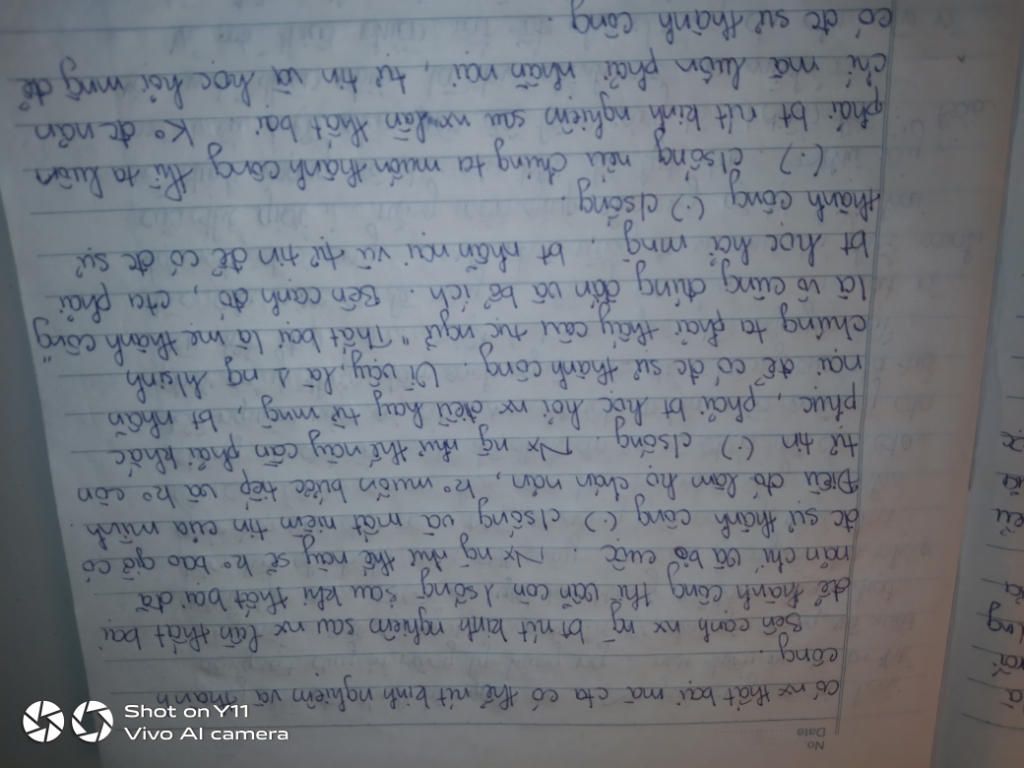 No.
Date
có nx thất bại mà cta có thể rút kinh nghiệm và thành
công.
Bên cạnh nx ng̃ bt rút kinh nghiệm sau nx lần thất bại
để thành công thì vẫn còn 1 số ng̃ sau khi thất bại đã
nản chí và bỏ cuộc. Nx ng̃ như thế này sẽ ko bao giờ có
đc sự thành công (.) c/sống và mất niềm tin của mình.
Điều đó làm họ chán nản, ko muốn bước tiếp và ko còn
tự tin (.) c/sống. Nx ng̃ như thế này cần phải khắc
phục, phải bt học hỏi nx điều hay từ mng̃, bt nhẫn
nại để có đc sự thành công. Vì vậy, là 1 ng h/sinh
chúng ta phải thấy câu tục ngữ "Thất bại là mẹ thành công"
là vô cùng đúng đắn và bổ ích. Bên cạnh đó, cta phải
bt học hỏi mng̃, bt nhẫn nại và tự tin để có đc sự
thành công (.) c/sống.
(.) c/sống nếu chúng ta muốn thành công thì ta luôn
phải bt rút kinh nghiệm sau nx lần thất bại. Ko đc nản
chí mà luôn phải nhẫn nại, tự tin và học hỏi mng̃ để
có đc sự thành công.
Shot on Y11
Vivo AI camera